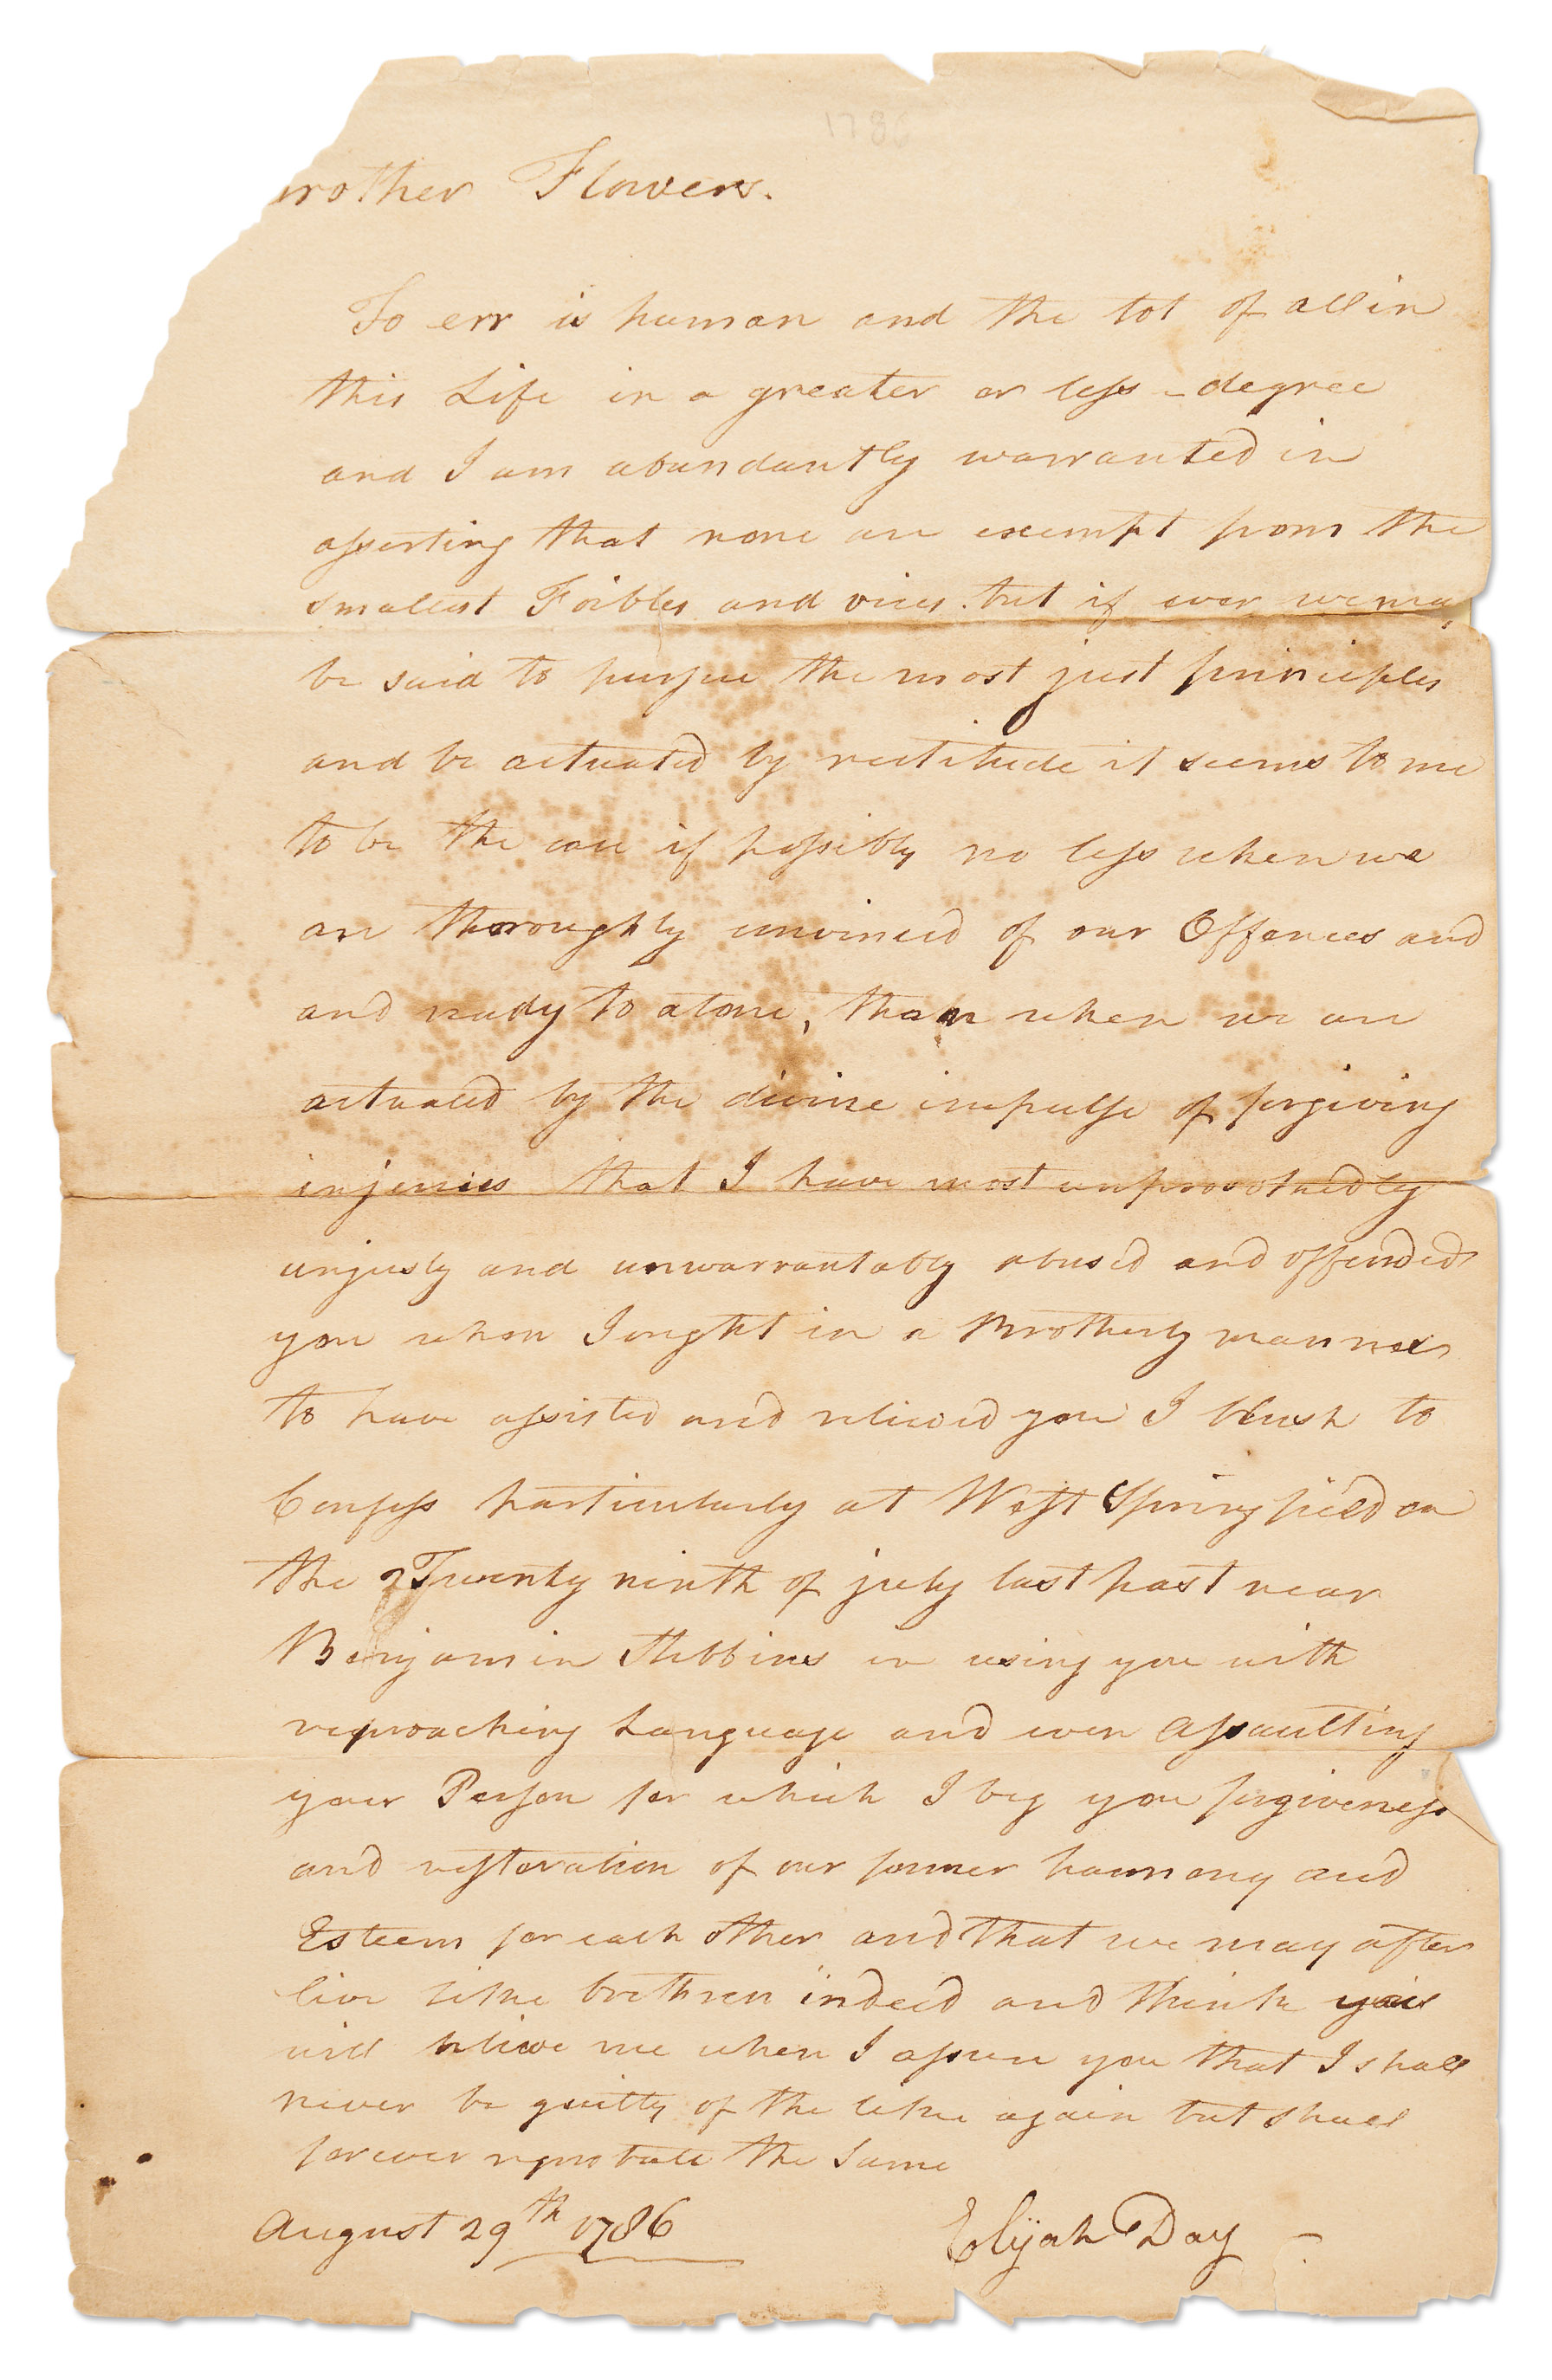 1786
rother Flowers.
To err is human and the lot of all in
this Life in a greater or less - degree
and I am abundantly warranted in
asserting that none are exempt from the
smallest Foibles and vices. but if ever we may
be said to pursue the most just principles
and be actuated by rectitude it seems to me
to be the case if possibly no less when we
are thoroughly convinced of our Offences and
and ready to atone, than when we are
actuated by the divine impulse of forgiving
injuries that I have most unprovokedly
unjusly and unwarrantably abused and offended
you when I ought in a Brotherly manner
to have assisted and relieved you I blush to
Confess particularly at West Springfield on
the Twenty ninth of july last past near
Benjamin Stebbins in using you with
reproaching Language and even Assaulting
your Person for which I beg you forgiveness
and restoration of our former harmony and
Esteem for each other and that we may after
live like brethren indeed and think you
will believe me when I assure you that I shall
never be guilty of the like again but shall
forever reprobate the Same
August 29th 1786 Elijah Day -